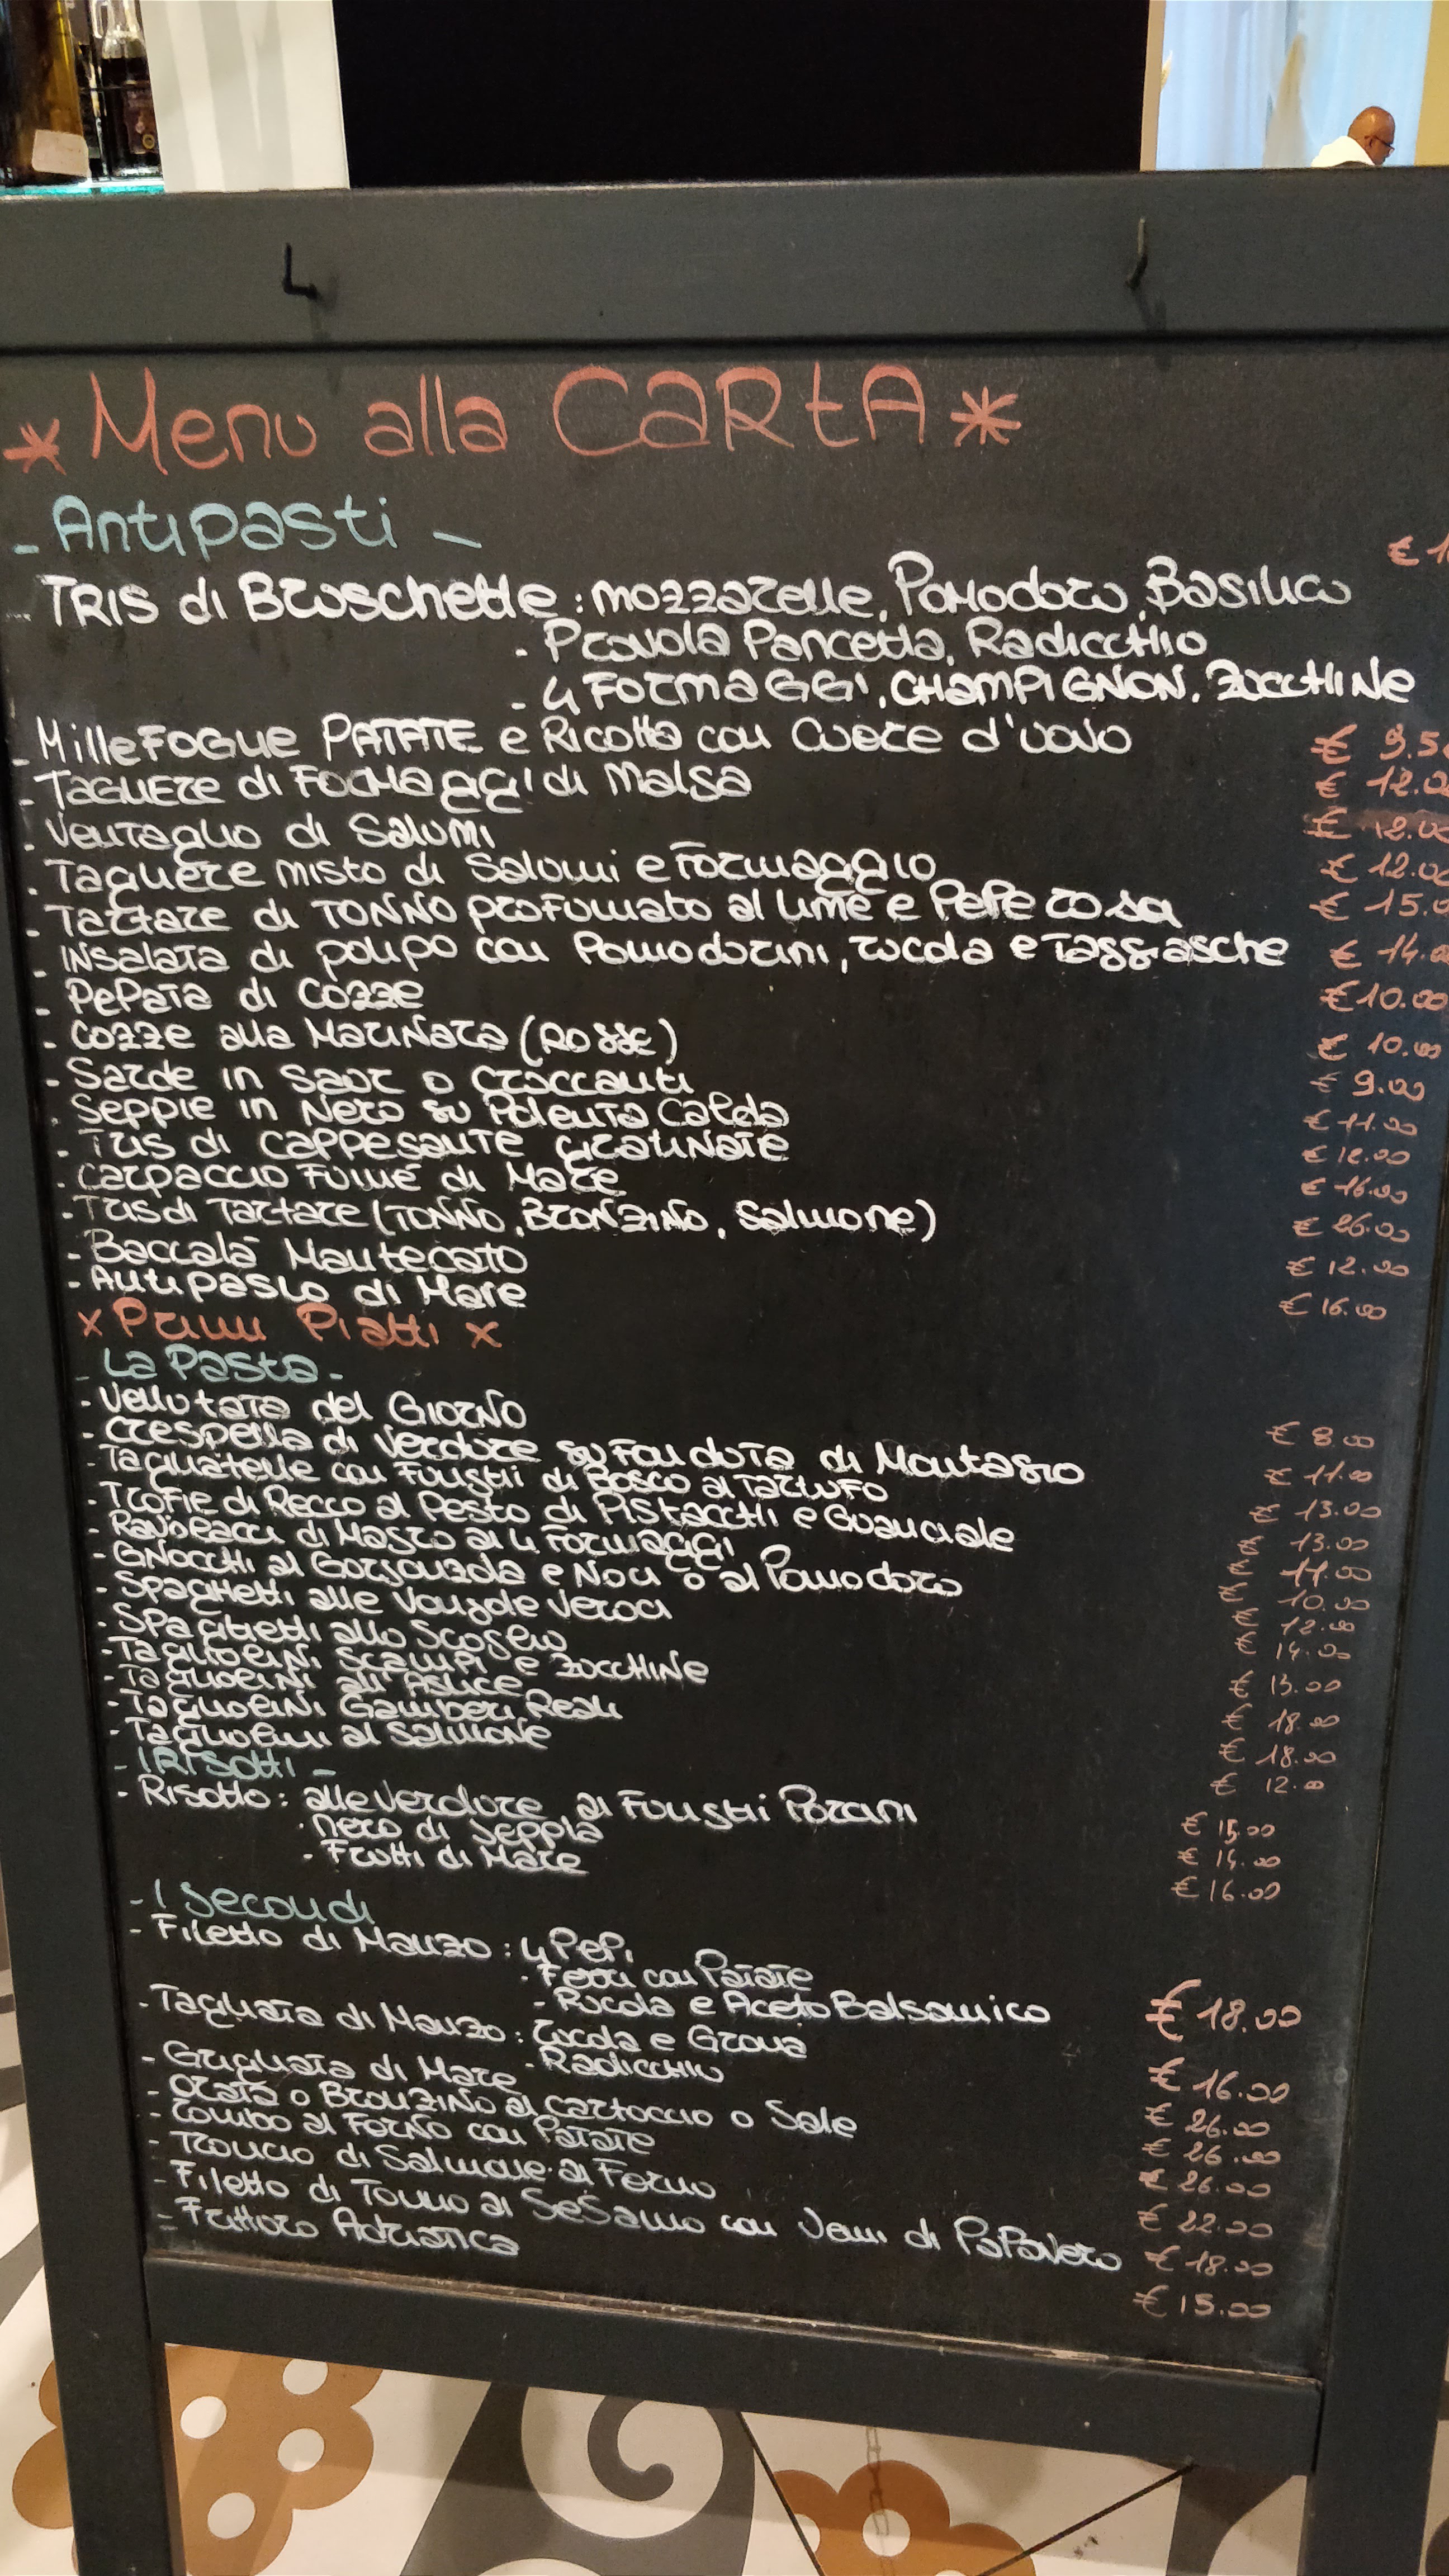 * Menu alla CaRtA *
- Antipasti -
- TRIS di Bruschette: mozzarelle, Pomodoro, Basilico € 1
- Provola Pancetta, Radicchio
- 4 Formaggi, CHAMPIGNON, Zucchine
- MilleFoglie PATATE e Ricotta con Cuore d'uovo € 9.5
- Tagliere di Formaggi di Malga € 12.0
- Ventaglio di Salumi € 12.0
- Tagliere misto di Salumi e Formaggio € 12.00
- Tartare di TONNO profumato al lime e Pepe rosa € 15.0
- INSalata di polipo con Pomodorini, rucola e Taggiasche € 14.00
- Pepata di Cozze € 10.00
- Cozze alla Marinara (Rosse) € 10.00
- Sarde in Saor o Croccanti € 9.00
- Seppie in Nero su Polenta Calda € 11.00
- Tris di Cappesante Gratinate € 12.00
- Carpaccio Fumé di Mare € 16.00
- Tris di Tartare (TONNO, BRONZINO, Salmone) € 26.00
- Baccalà Mantecato € 12.00
- Antipasto di Mare € 16.00
x Primi Piatti x
- La Pasta -
- Vellutata del Giorno € 8.00
- Crespella di Verdure su Fonduta di Montasio € 11.00
- Tagliatelle con Funghi di Bosco al Tartufo € 13.00
- Trofie di Recco al Pesto di Pistacchi e Guanciale € 13.00
- Raviolacci di Magro ai 4 Formaggi € 11.00
- GNocchi al Gorgonzola e Noci o al Pomodoro € 10.00
- Spaghetti alle Vongole Veraci € 12.00
- Spaghetti allo Scoglio € 14.00
- Tagliolini Scampi e Zucchine € 13.00
- Tagliolini all'Astice € 18.00
- Tagliolini Gamberi Reali € 18.00
- Tagliolini al Salmone € 12.00
- I Risotti -
- Risotto: alle verdure, ai Funghi Porcini € 15.00
- nero di Seppia € 14.00
- Frutti di Mare € 16.00
- I Secondi
- Filetto di Manzo: 4 Pepi
- Ferri con Patate
- Rucola e Aceto Balsamico € 18.00
- Tagliata di Manzo: rucola e Grana
- Radicchio € 16.00
- Grigliata di Mare € 26.00
- Orata o Bronzino al cartoccio o Sale € 26.00
- Rombo al Forno con Patate € 26.00
- Trancio di Salmone al Forno € 22.00
- Filetto di Tonno al Sesamo con Semi di Papavero € 18.00
- Frittura Adriatica € 15.00